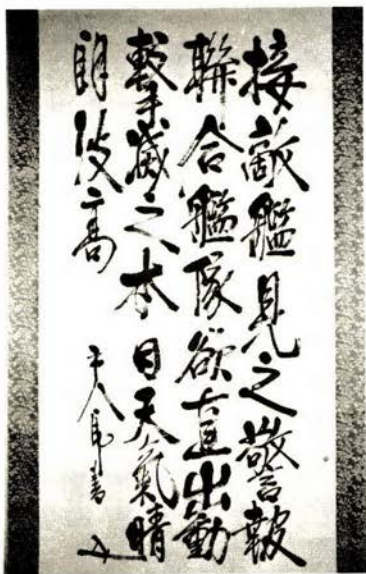 接敵艦見之警報
聯合艦隊欲直出動
撃滅之本日天氣晴
朗波高
平八郎書